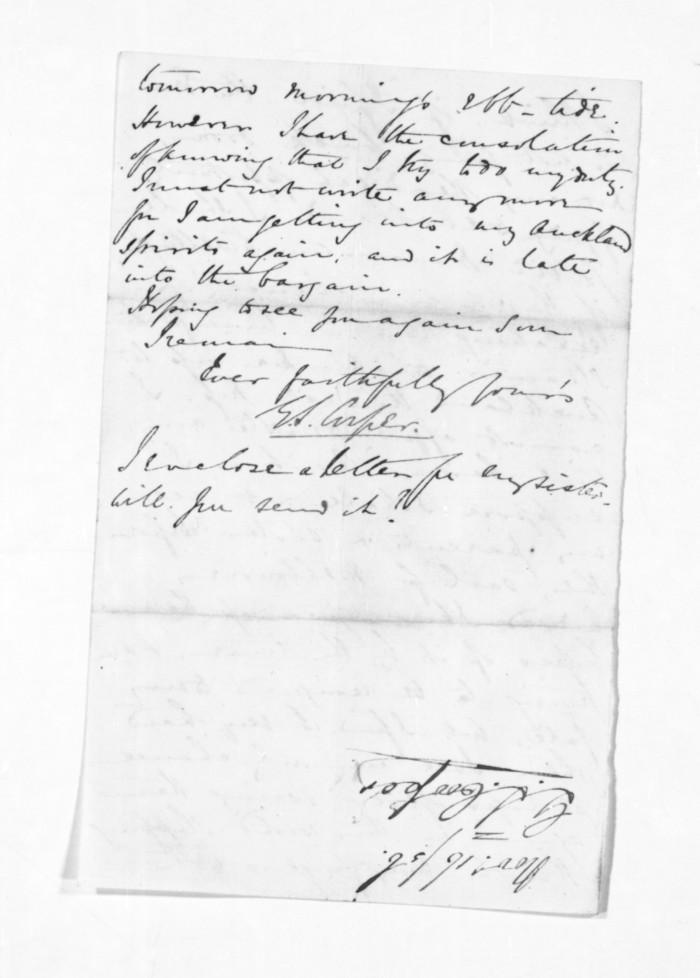 tomorrow morning's ebb-tide.
However I have the consolation
of knowing that I try to do my duty.
I must not write any more
for I am getting into my Auckland
spirits again, and it is late
into the bargain.
Hoping to see you again soon
I remain
Ever faithfully yours
G. S. Cooper.
I enclose a letter for my sister –
will you send it?
G. S. Cooper
Nov: 16/56.